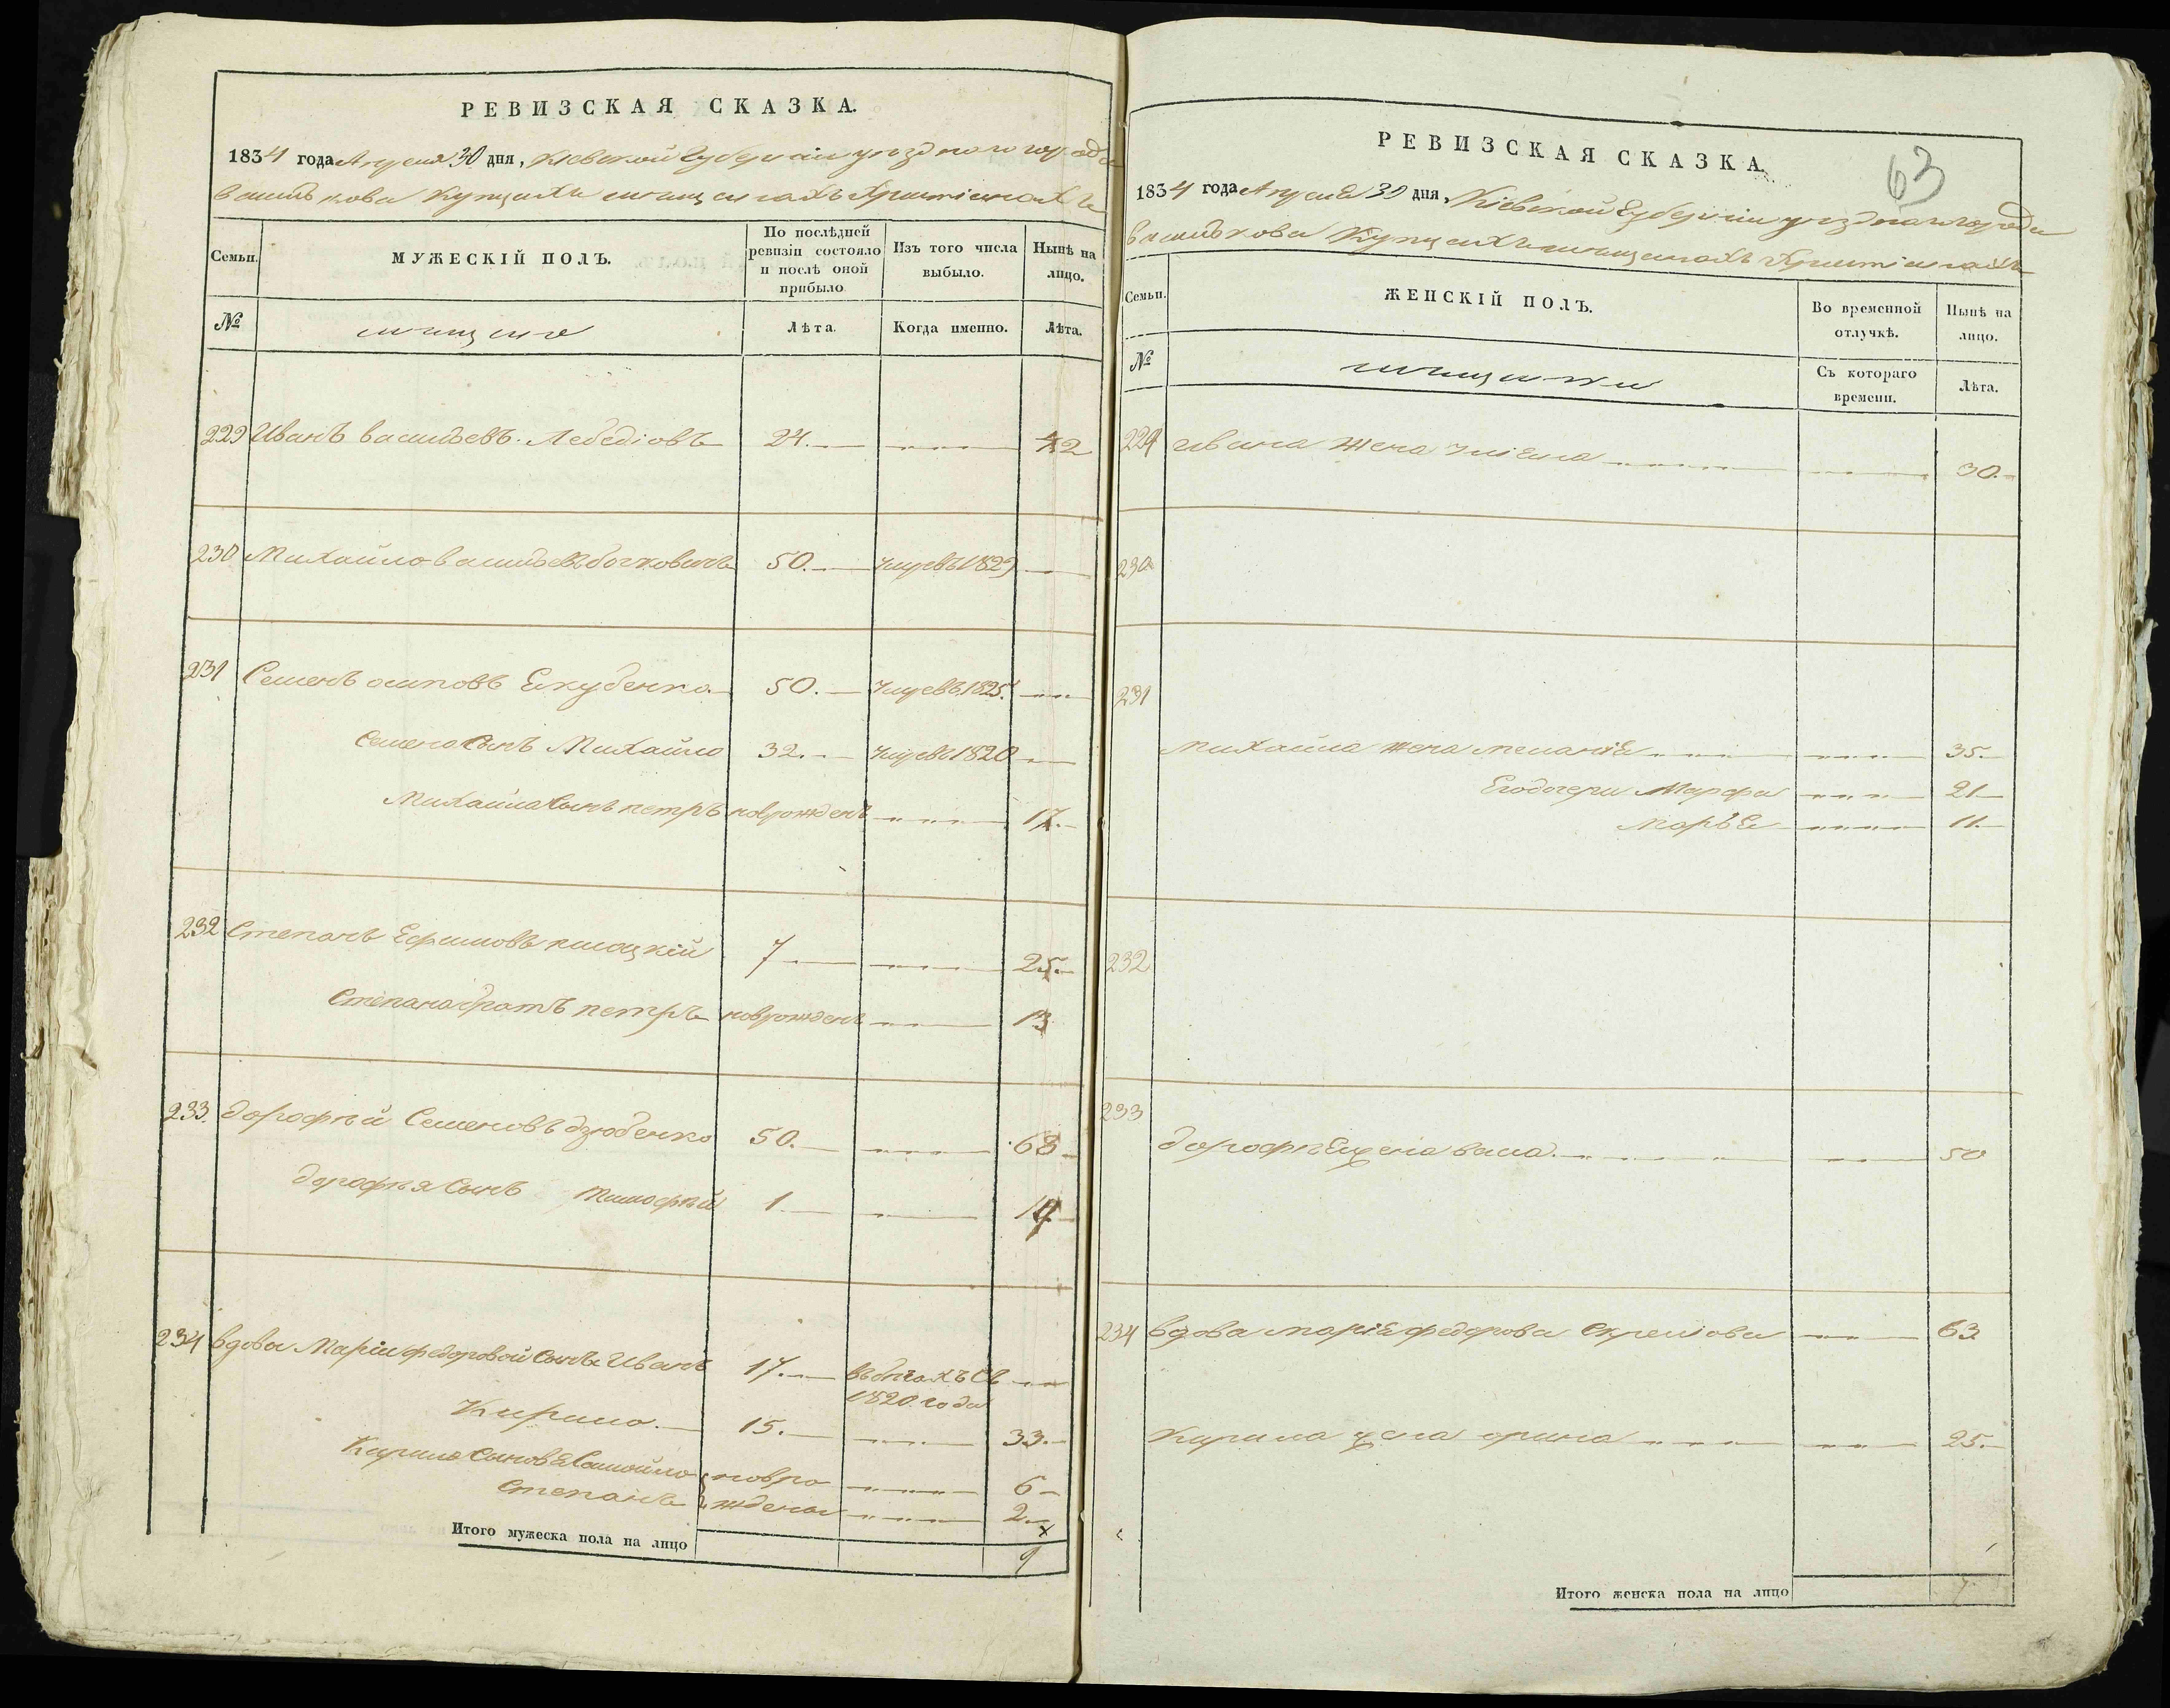 РЕВИЗСКАЯ СКАЗКА.
1834 года Апреля 30 дня, Кіевской Губерніи уезднаго города
василькова Купцахъ мещанахъ Христіанахъ
Семьи. МУЖЕСКІЙ ПОЛЪ. По послѣдней ревизіи состояло и послѣ оной прибыло Изъ того числа выбыло. Нынѣ на лицо.
№ мещане Лѣта. Когда именно. Лѣта.
229 Иванъ васильевъ Лебедіовъ 24. 42
230 Михайло васильевъ бочковичъ 50. умревъ 1829
231 Семенъ осиповъ Екубенко 50. умревъ 1825
Семена Сынъ Михайло 32. умревъ 1820
Михайла Сынъ петръ новрожденъ 17.
232 Степанъ Ефимовъ 7 25.
Степана братъ петръ новрожденъ 13
233. дорофѣй Семеновъ дзюбенко 50. 68
дорофѣя Сынъ Тимофѣй 1 19
234 вдовы Маріи федоровой Сынъ Иванъ 17. въ бѣгахъ съ
1820 года
Кирило. 15. 33.
Кирила Сыновя Самойло новро 6
Степанъ ждены 2
Итого мужеска пола на лицо 9
РЕВИЗСКАЯ СКАЗКА.
63
1834 года Апреля 30 дня, Кіевской Губерніи уезднаго города
василькова Купцахъ мещанахъ Христіанахъ
Семьи. ЖЕНСКІЙ ПОЛЪ. Во временной отлучкѣ. Нынѣ на лицо.
№ мещанки Съ котораго времени. Лѣта.
229 Ивана жена 30.
230
231
Михайла жена меланія 35.
Его дочери Марфа 21
Марья 11.
232
233
дорофѣя 50
234 вдова марія федорова 63
Кирила жена орина 25.
Итого женска пола на лицо 7